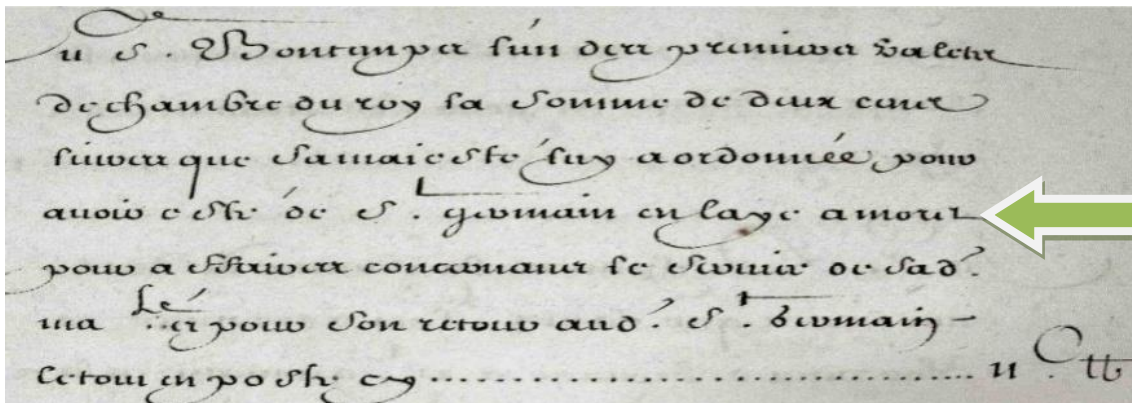 u S. Bontemps l'un des premiers valetz
de chambre du roy la somme de deux cens
livres que sa maiesté luy a ordonnée pour
avoir esté de St. germain en laye a
pour affaires concernans le service de sad.
ma.té et pour son retour aud. St. germain
le tout en poste cy .............................. II C. tt